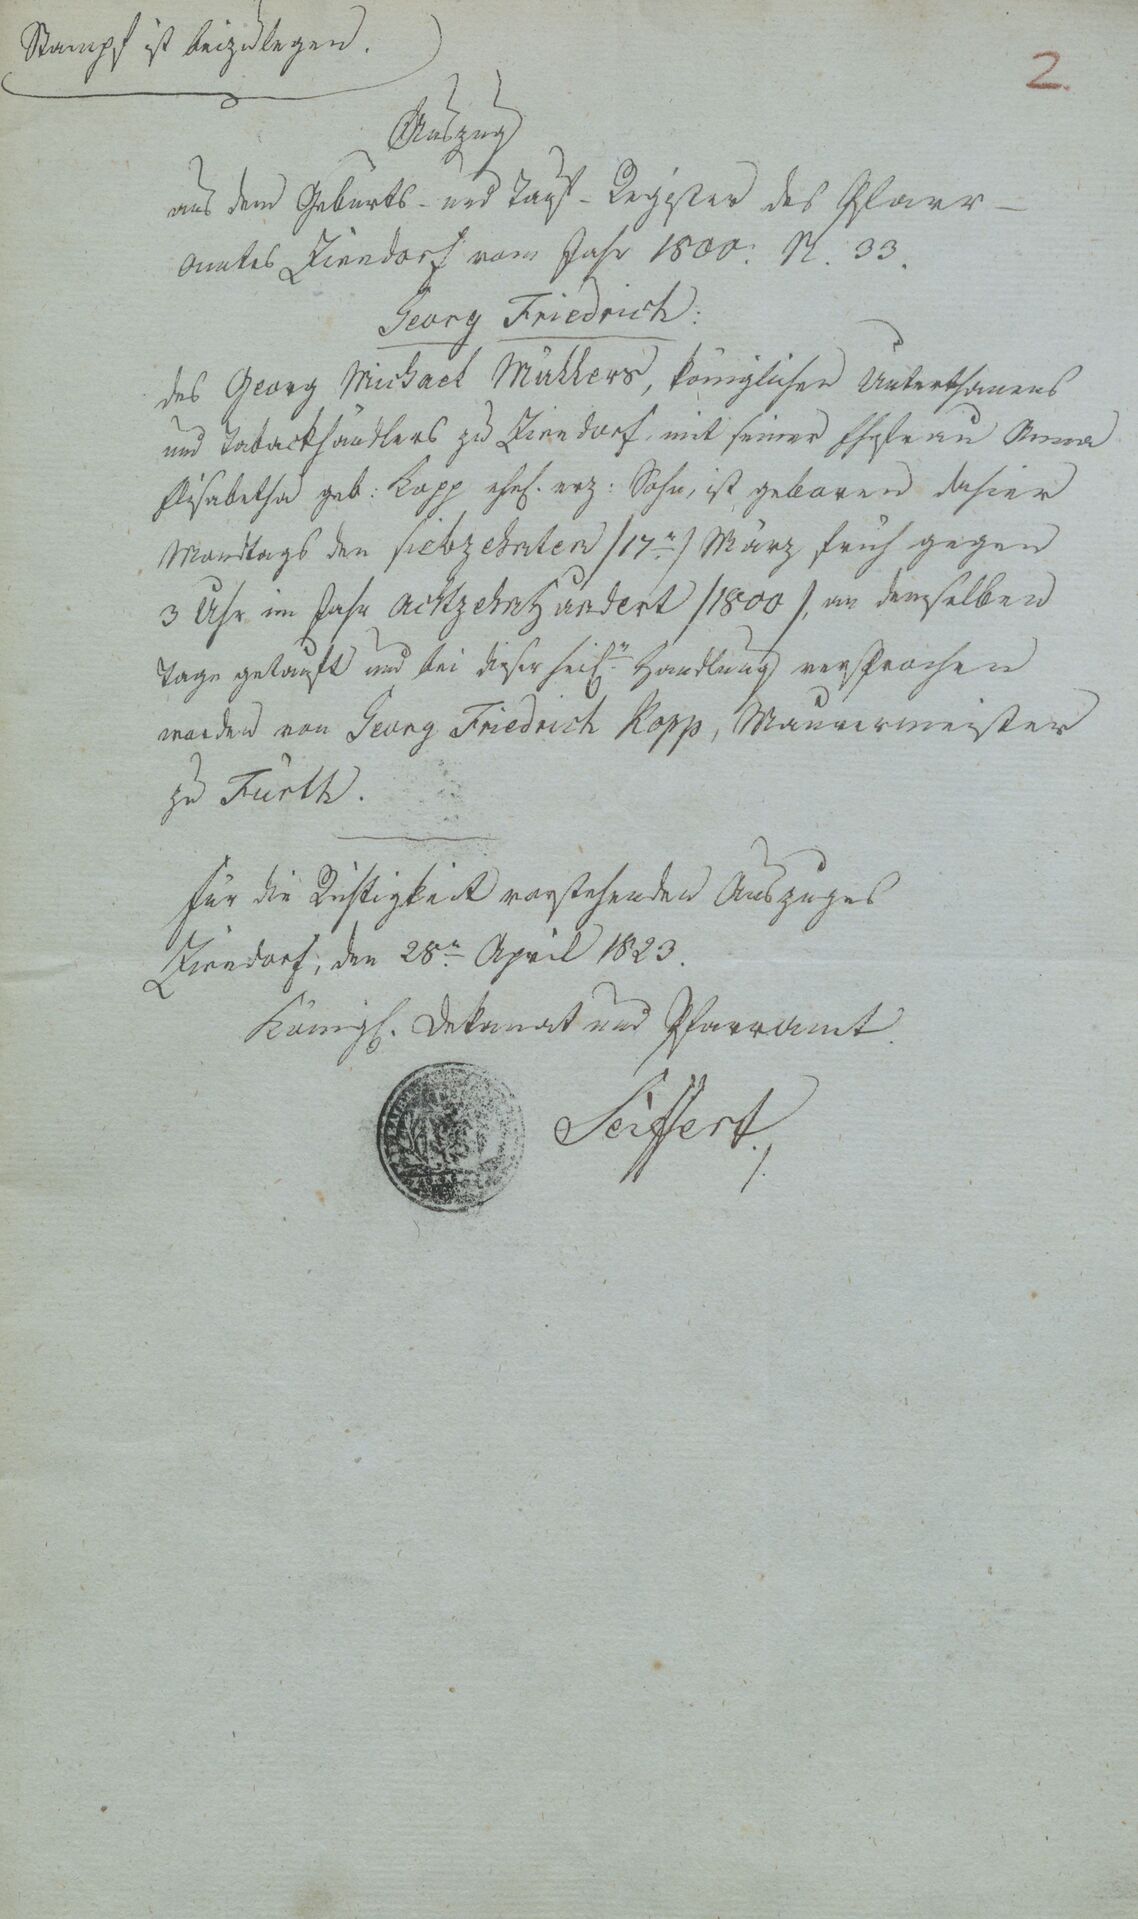 Stampf ist beizulegen.
2.
Auszug
aus dem Geburts- und Tauf-Register des Pfarr-
amtes Zirndorf vom Jahr 1800. N. 33.
Georg Friedrich:
des Georg Michael Müllers, königlichen Unterthanens
und Tabackhändlers zu Zirndorf, mit seiner Ehefrau Anna
Elisabetha geb: Kopp ehel. erz: Sohn, ist geboren dahier
Mondtags den siebzehnten /17n/ März früh gegen
3 Uhr im Jahr achtzehnhundert /1800/, an demselben
Tage getauft und bei dieser heil.n Handlung versprochen
worden von Georg Friedrich Kopp, Maurermeister
zu Fürth.
Für die Richtigkeit vorstehenden Auszuges
Zirndorf, den 28n April 1823.
Königl. Dekanat und Pfarramt.
Seiffert